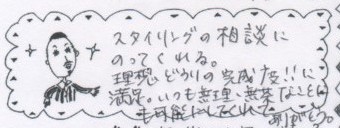 スタイリングの相談に
のってくれる。
理想どうりの完成度!!に
満足。いつも無理、無茶なことに
も可能にしてくれて